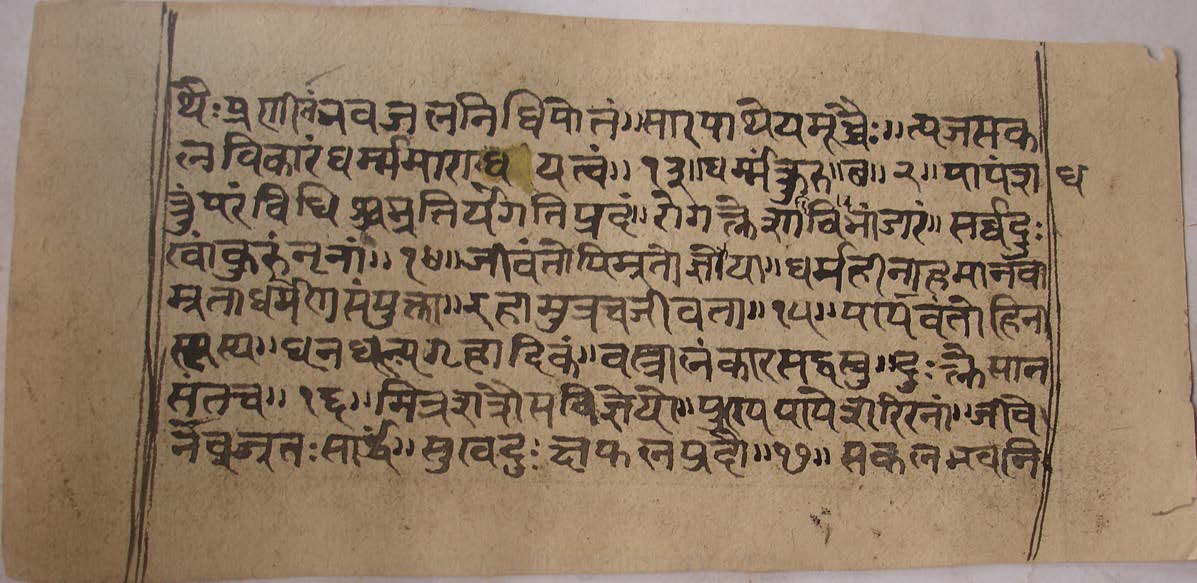 र्थैः प्रणीतं भवजलनिधिपोतं॥ सारपाथेयमूच्चैः॥ त्यजसक
लविकारं धर्म्ममाराधयत्वं॥ १३॥ धर्म्मं कुरु॥ ब॥ २॥ पापं श
त्रुं परं विधि श्वभ्रतिर्यंगतिप्रदं॥ रोगक्लेशा सर्व्वदुः
खां नृनां॥ १४॥ जीवंतोपि मृतो ज्ञेया॥ धर्महीनाहमानवा
मृता धर्मेण संयुक्ता॥ इहामुत्रच जीवता॥ १५॥ पापवंतो हिना
स्त्यस्य॥ धनधान्यगृहादिकं॥ वस्त्रालंकारसद्वस्तु॥ दुःक्लेसान
संतच॥ १६॥ मित्रशत्रौ ज्ञेयो॥ पुण्यपापे शरिरिनां॥ जीवे
सार्द्धं॥ सुखदुः फलप्रदौ॥ १७॥ सकलभवनि
ध